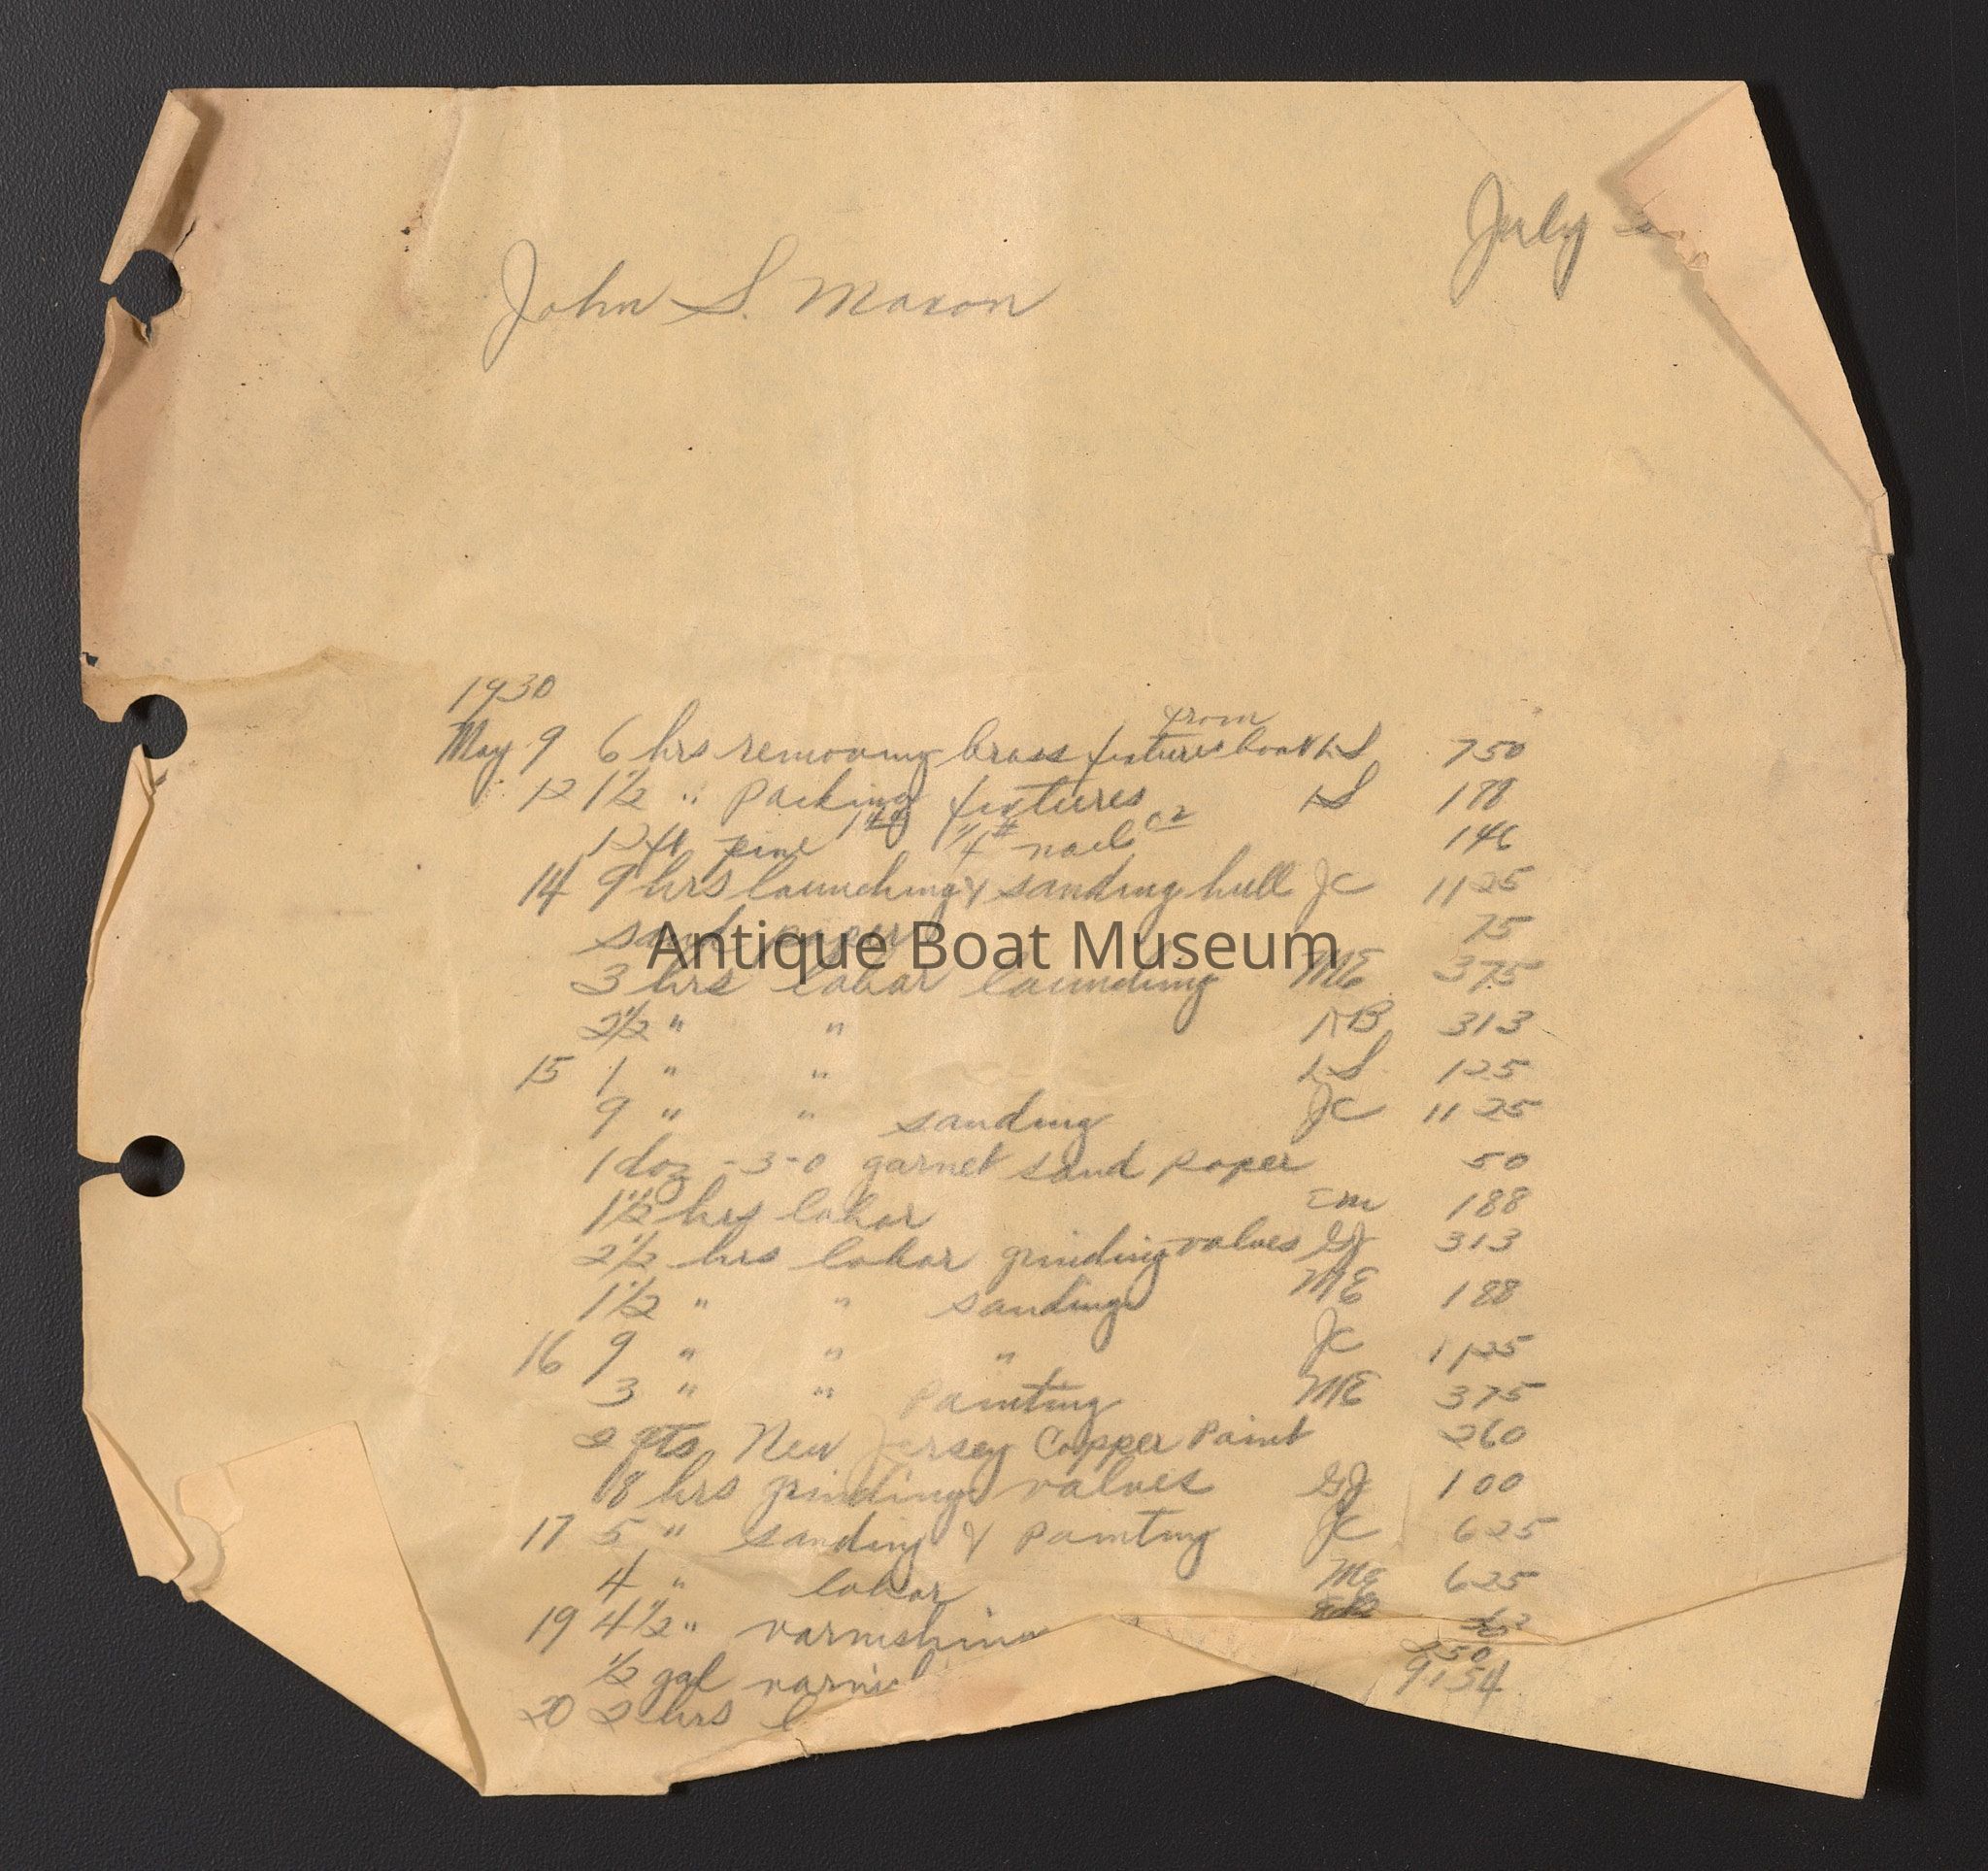 July
John S. Mason
1930
from
May 9 6 hrs removing brass fixtures boat LS 750
12 1½ " Packing fixtures LS 178
12 ft pine ¼# nails 146
14 9 hrs launching & sanding hull JC 1125
sand paper 75
Antique Boat Museum
3 hrs labor launching ME 375
2½ " " RB 313
15 1 " " LS 125
9 " " sanding JC 1125
1 doz -3-0 garnet sand paper 50
1½ hrs labor EM 188
2½ hrs labor grinding valves GJ 313
1½ " " sanding ME 188
16 9 " " " JC 1125
3 " " Painting ME 375
2 qts New Jersey Copper Paint 260
8 hrs grinding valves GJ 100
17 5 " sanding & painting JC 625
4 " labor ME 625
19 4½ " varnishin
½ gal varnis 250
20 2 hrs l 9154